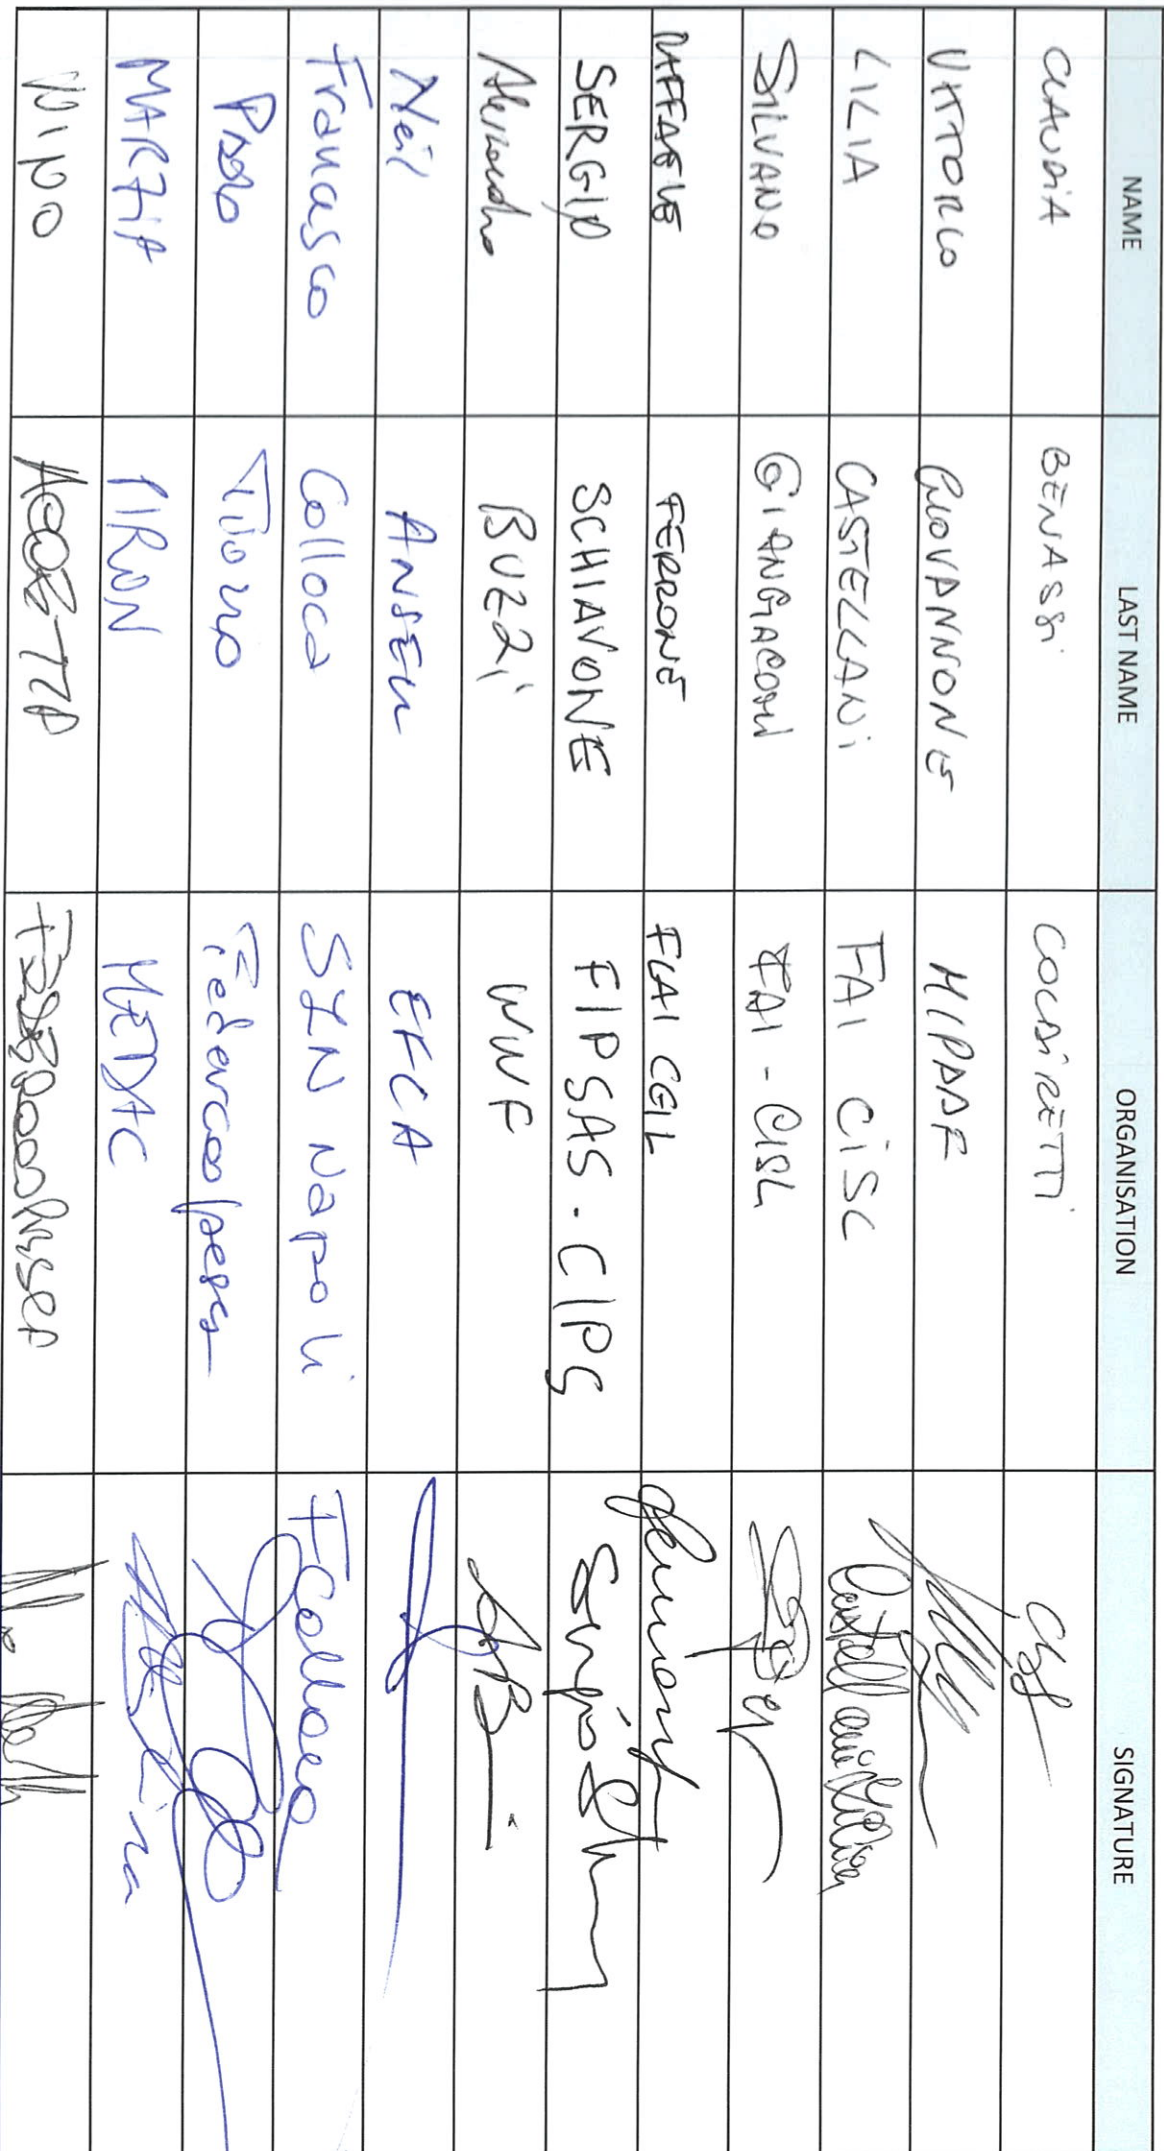 NAME LAST NAME ORGANISATION SIGNATURE
CLAUDIA BENASSI COLDIRETTI
VITTORIO GIOVANNONE MIPAAF
LILIA CASTELLANI FAI CISL Castellani Lilia
SILVANO GIANGIACOMI FAI - CISL
RAFFAELE FERRONE FLAI CGIL
SERGIO SCHIAVONE FIPSAS - CIPS
Alessandro BUZZi WWF
Neil ANSELL EFCA
Francesco Colloca SZN Napoli FColloca
Paolo Tiozzo Federcoopesca
MARZIA PIRON MEDAC
NINO ACCETTA